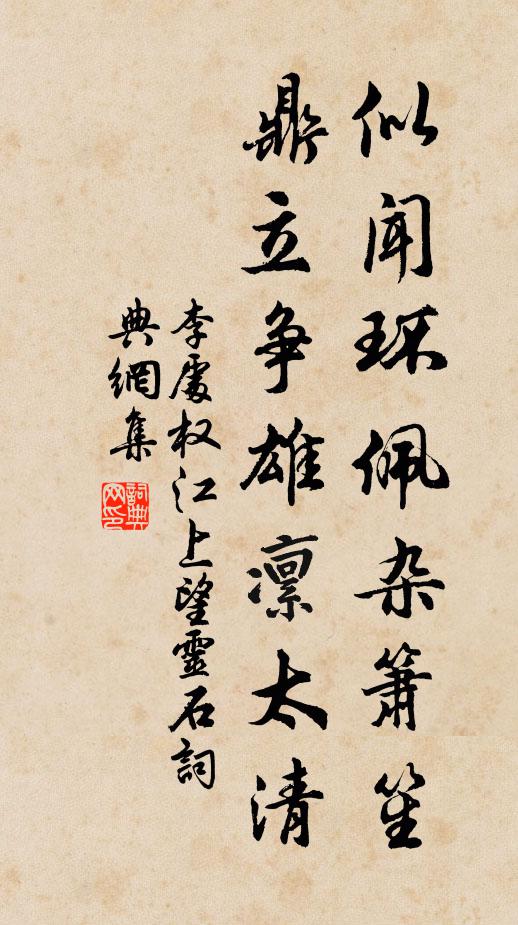 似闻环佩杂箫笙
鼎立争雄凛太清
李處权江上望靈石詞
典網集
詞典网印